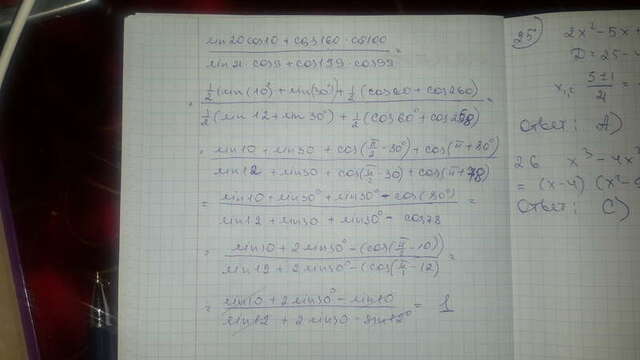 sin20cos10 + cos160 · cos100 / sin21 · cos9 + cos159 · cos99 =
= ½(sin(10°) + sin(30°)) + ½(cos60 + cos260) / ½(sin 12 + sin 30°) + ½(cos60° + cos258) =
= sin10 + sin30 + cos(π/2 - 30°) + cos(π + 80°) / sin12 + sin30 + cos(π/2 - 30) + cos(π + 78)
= sin10 + sin30° + sin30° - cos(80°) / sin12 + sin30 + sin30° - cos78 =
= sin10 + 2sin30° - (cos(π/2 - 10)) / sin12 + 2sin30° - (cos(π/2 - 12) =
= sin10 + 2sin30° - sin10 / sin12 + 2sin30 - sin12° = 1
25 2x² - 5x +
D = 25 -
x₁,₂ 5±1 / 4 =
Ответ: A)
26 x³ - 4x²
= (x-4) (x² - 9
Ответ: C)